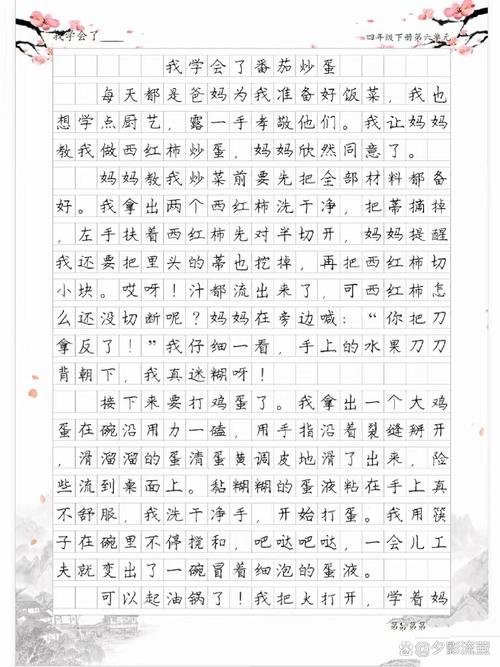 我学会了____
四年级下册第六单元
我学会了番茄炒蛋
每天都是爸妈为我准备好饭菜，我也
想学点厨艺，露一手孝敬他们。我让妈妈
教我做西红柿炒蛋，妈妈欣然同意了。
妈妈教我炒菜前要先把全部材料都备
好。我拿出两个西红柿洗干净，把蒂摘掉
，左手扶着西红柿先对半切开，妈妈提醒
我还要把里头的蒂也挖掉，再把西红柿切
小块。哎呀！汁都流出来了，可西红柿怎
么还没切断呢？妈妈在旁边喊：“你把刀
拿反了！”我仔细一看，手上的水果刀刀
背朝下，我真迷糊呀！
接下来要打鸡蛋了。我拿出一个大鸡
蛋在碗沿用力一磕，用手指沿着裂缝掰开
，滑溜溜的蛋清蛋黄调皮地滑了出来，险
些流到桌面上。黏糊糊的蛋液粘在手上真
不舒服，我洗干净手，开始打蛋。我用筷
子在碗里不停搅和，吧哒吧哒，一会儿工
夫就变出了一碗冒着细泡的蛋液。
可以起油锅了！我把火打开，学着妈
@夕影流萤